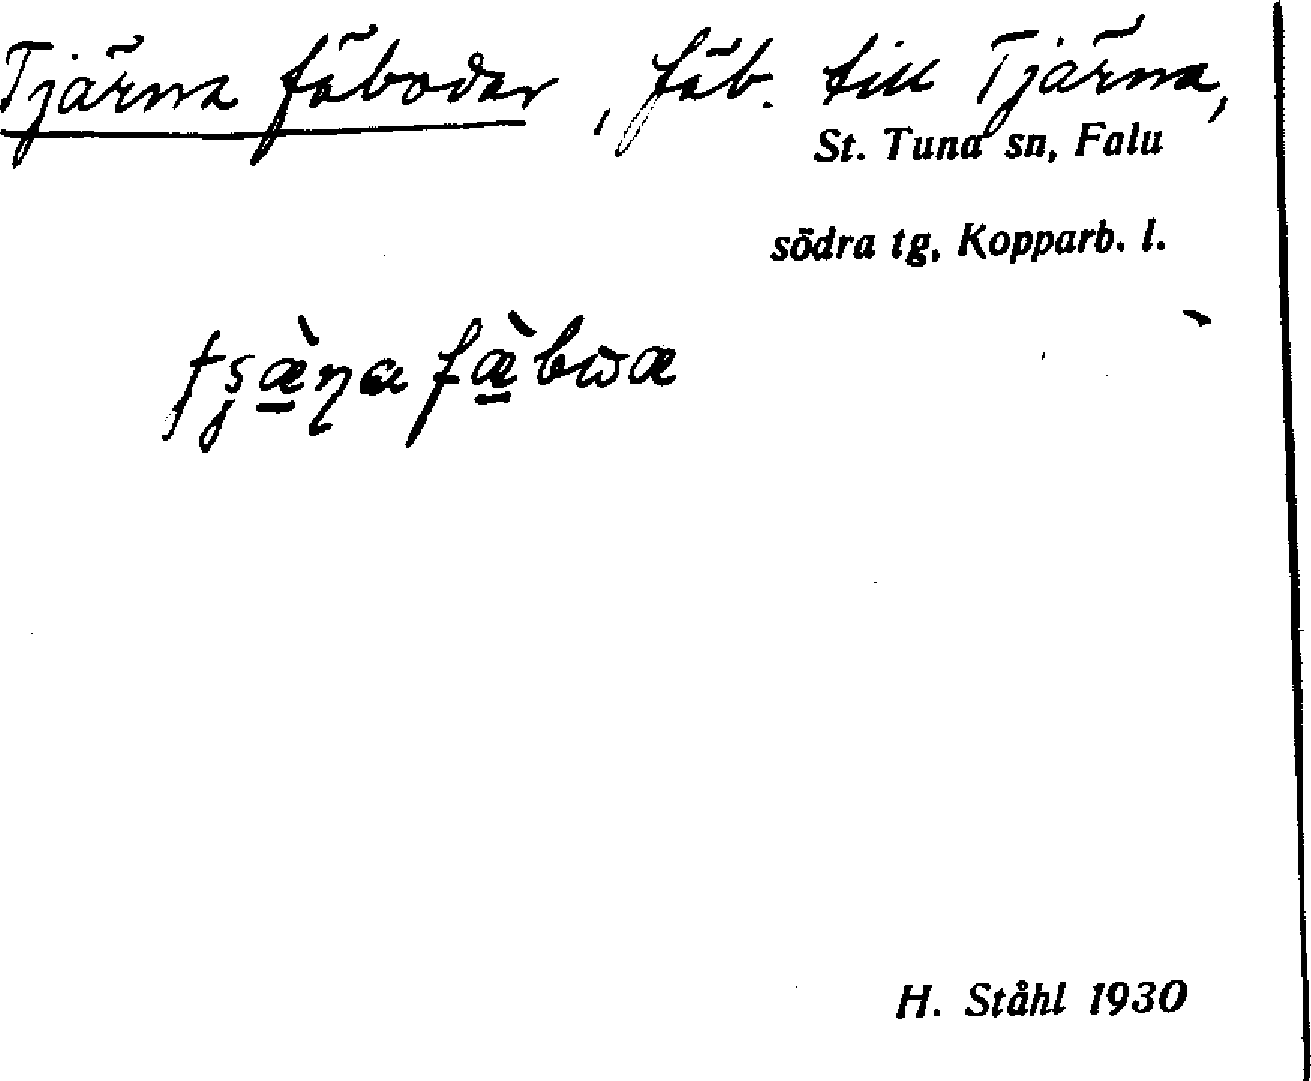 Tjärna fäbodar, fäb. till Tjärna,
St. Tuna sn, Falu
södra tg, Kopparb. l.
H. Ståhl 1930